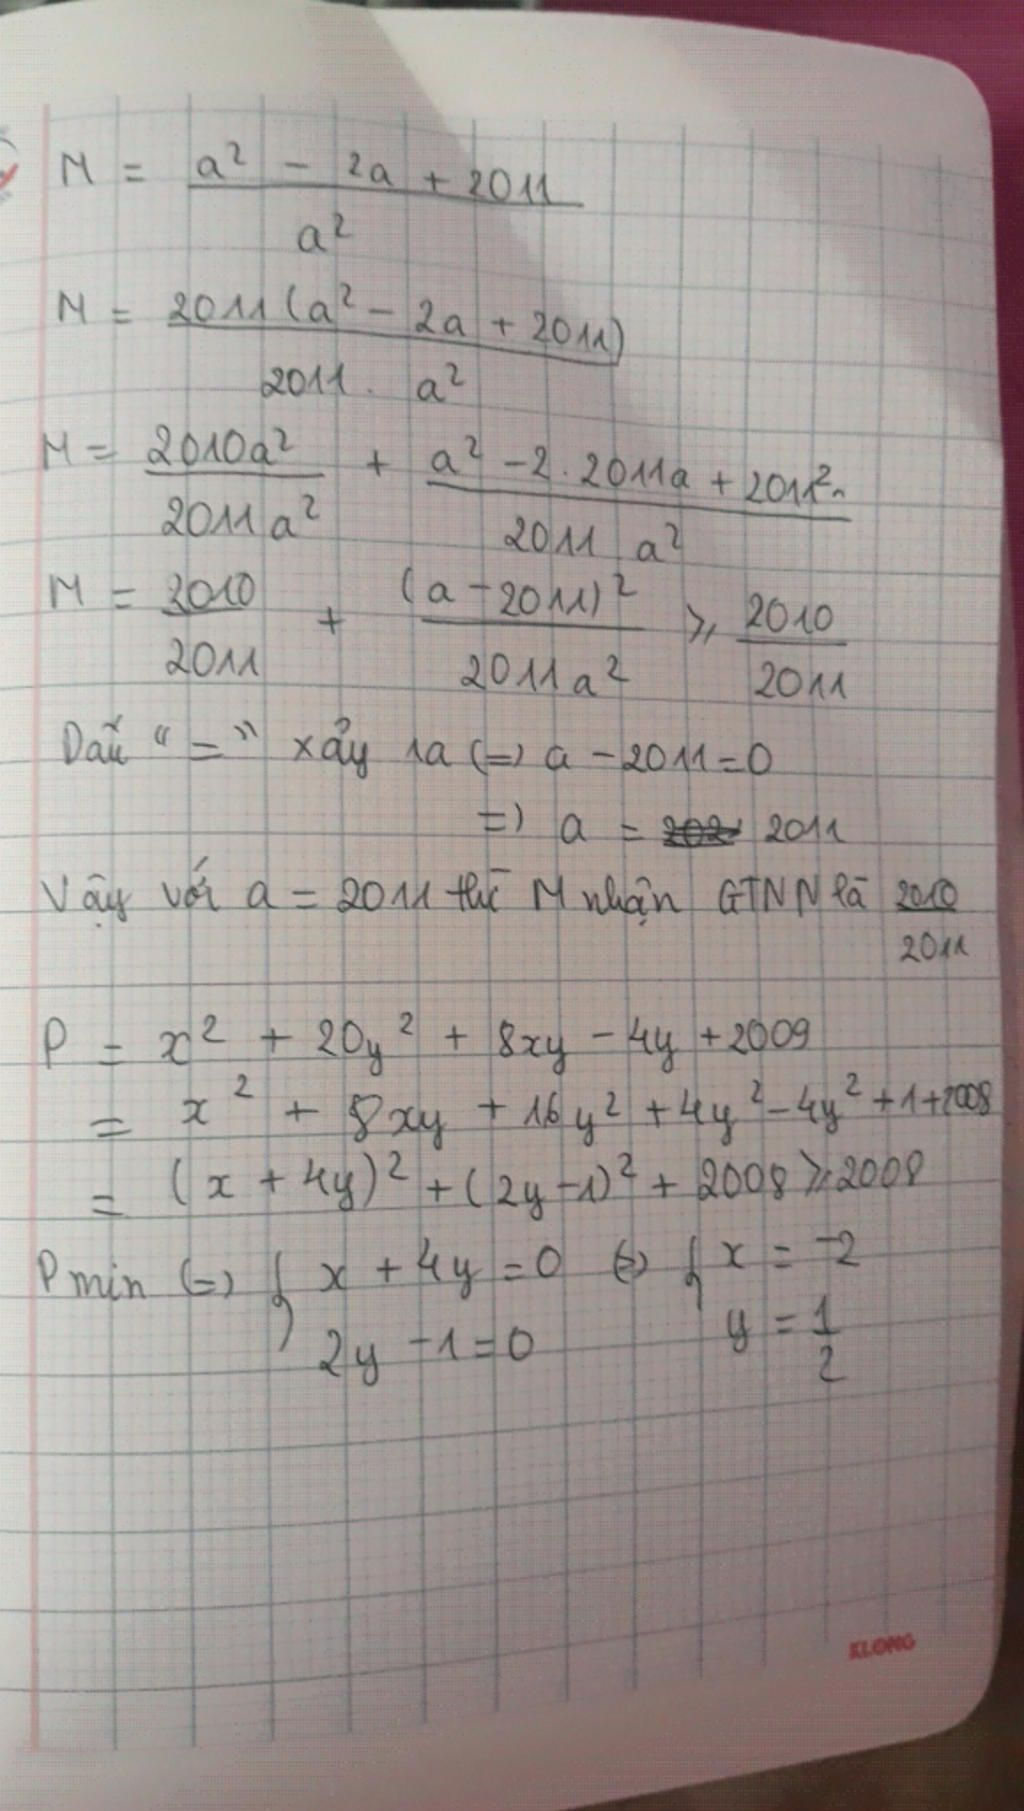 M = a² - 2a + 2011
a²
M = 2011(a² - 2a + 2011)
2011. a²
M = 2010a² + a² - 2.2011a + 2011²
2011a² 2011 a²
M = 2010 + (a - 2011)² ⩾ 2010
2011 2011a² 2011
Dấu "=" xảy ra (=) a - 2011 = 0
=) a = 2011
Vậy với a = 2011 thì M nhận GTNN là 2010
2011
P = x² + 20y² + 8xy - 4y + 2009
= x² + 8xy + 16y² + 4y² - 4y² + 1 + 2008
= (x + 4y)² + (2y - 1)² + 2008 ⩾ 2008
P min (=) { x + 4y = 0 (=) { x = -2
2y - 1 = 0 y = 1
2
KLONG